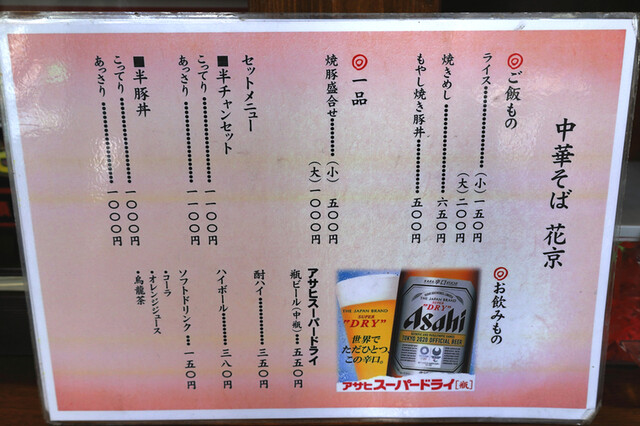 中華そば 花京
◎ご飯もの
ライス……………(小)一五〇円
(大)二〇〇円
焼きめし……………六五〇円
もやし焼き豚丼……………五〇〇円
◎一品
焼豚盛合せ……………(小)五〇〇円
(大)一〇〇〇円
セットメニュー
■半チャンセット
こってり……………一一〇〇円
あっさり……………一一〇〇円
■半豚丼
こってり……………一〇〇〇円
あっさり……………一〇〇〇円
◎お飲みもの
THE JAPAN BRAND
SUPER
"DRY"
世界で
ただひとつ、
この辛口。
THE JAPAN BRAND
SUPER
"DRY"
Asahi
TOKYO 2020 OFFICIAL BEER
アサヒスーパードライ[瓶]
アサヒスーパードライ
瓶ビール(中瓶)…五五〇円
酎ハイ……………三五〇円
ハイボール……………三八〇円
ソフトドリンク…一五〇円
・コーラ
・オレンジジュース
・烏龍茶